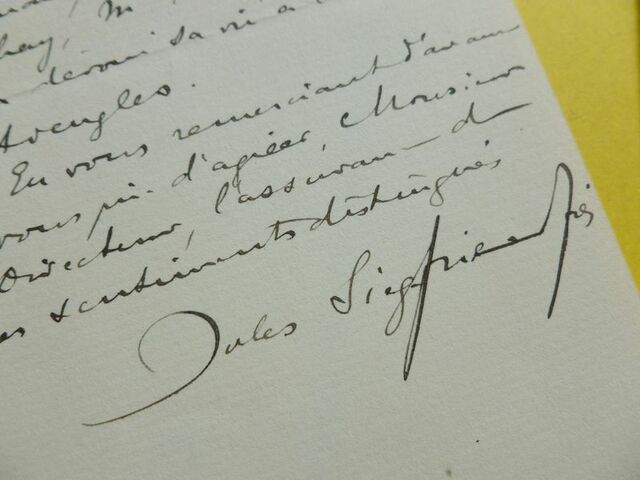 dévoué sa vie à
Aveugles.
En vous remerciant d'avance
vous prie d'agréer, Monsieur
Directeur, l'assurance de
sentiments distingués
Jules Siegfried